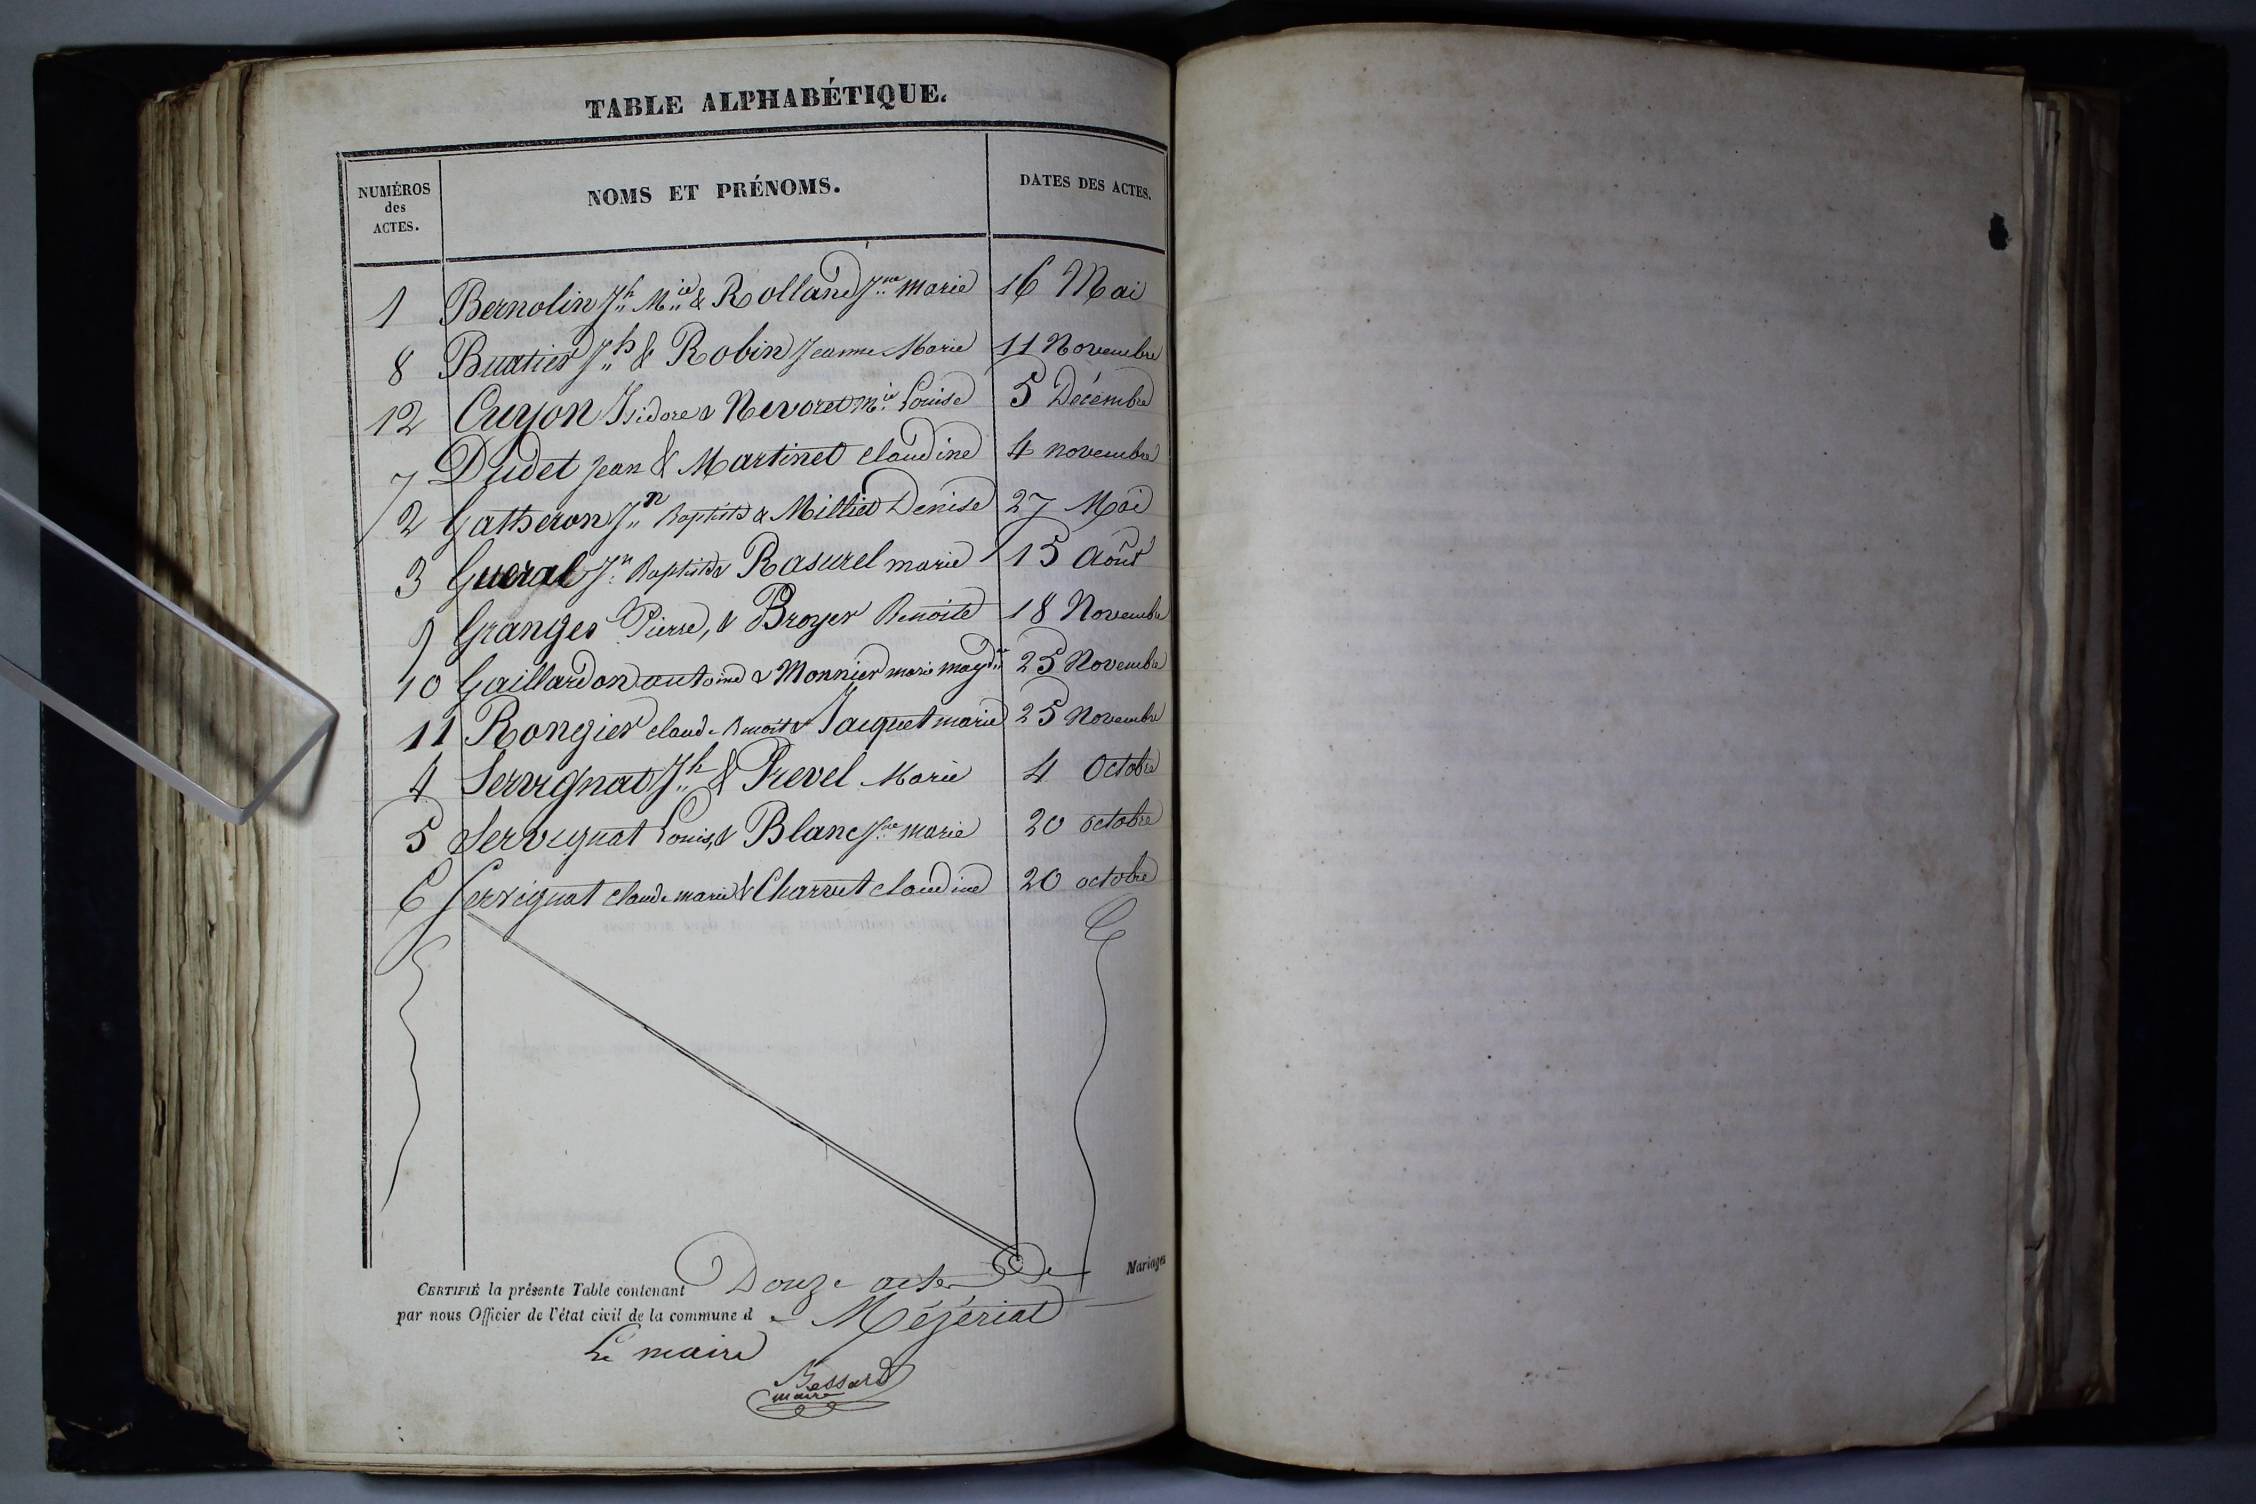 TABLE ALPHABÉTIQUE.
NUMÉROS des ACTES. NOMS ET PRÉNOMS. DATES DES ACTES.
1 Bernolin Jh Mie & Rolland Jne marie 16 Mai
8 Buatier Jh & Robin Jeanne Marie 11 Novembre
12 Cuyon Isidore & Nevoret Mie Louise 5 Décembre
7 Dudet Jean & Martinet claudine 4 novembre
2 Gatheron Jn Baptiste & Milliet Denise 27 Mai
3 Gueral Jn Baptiste & Rasurel marie 15 Août
9 Granges Pierre, & Broyer Benoite 18 Novembre
10 Gaillardon antoine & Monnier marie magdne 25 Novembre
11 Rongier claude Benoit & Jacquet marie 25 Novembre
4 Servignat Jh & Prevel Marie 4 Octobre
5 Servignat Louis, & Blanc Jne marie 20 octobre
6 Servignat claude marie & Charvet claudine 20 octobre
CERTIFIÉ la présente Table contenant Douze actes de Mariages
par nous Officier de l'état civil de la commune d e Mézériat
Le maire
Bessard
maire